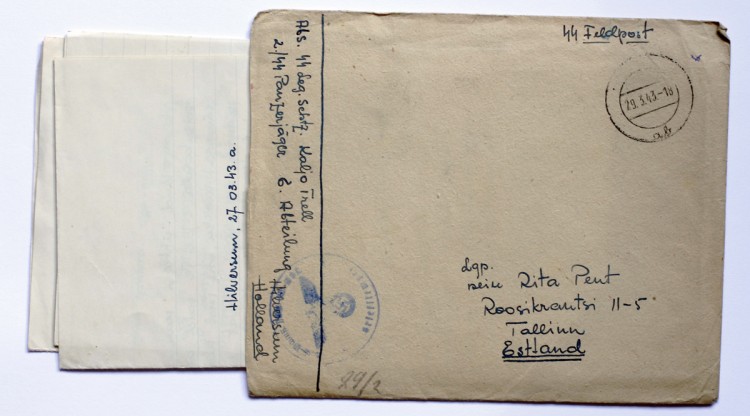 44 Feldpost
29.3.43.-18
ab
Abs. 44 Leg. Schtz. Kaljo Trell
2./44 Panzerjäger 6. Abteilung
Hilversum
Holland
Lgp.
Rita Pent
Roosikrantsi 11-5
Tallinn
Estland
Hilversum, 27.03.43.a.
89/2